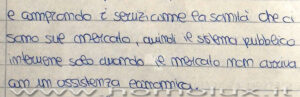 e comprando i servizi come la sanità che ci
sono sul mercato, quindi il sistema pubblico
interviene solo quando il mercato non arriva
con un assistenza economica.